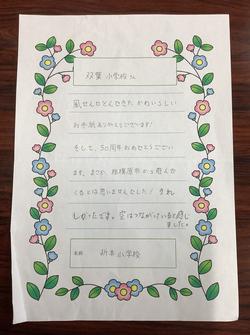 双葉 小学校さん
風せんでとんできた かわいらしい
お手紙ありがとうございます!
そして、50周年おめでとうござい
ます。まさか、相模原市から飛んで
くるとは思いませんでした! うれ
しかったです。空はつながっていると感じ
ました。
名前
新本 小学校